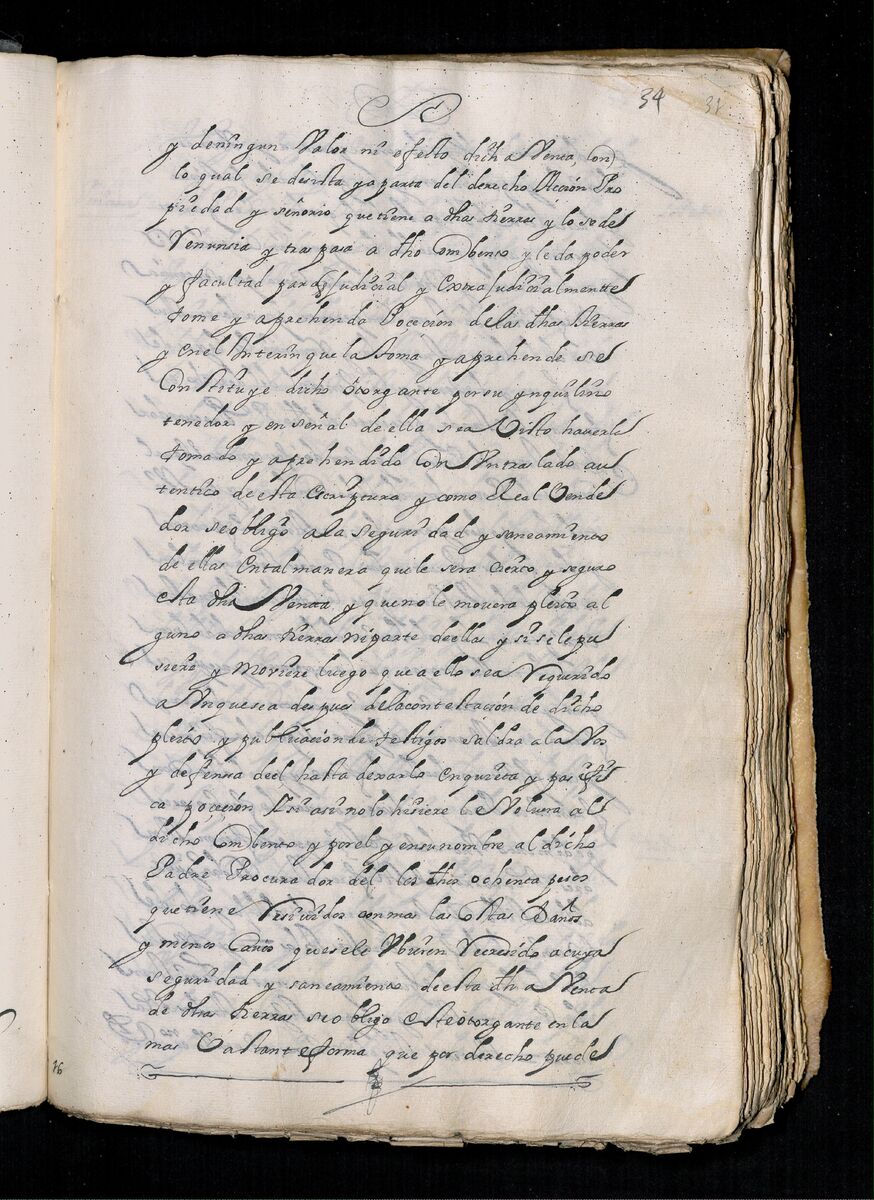 34 31
y deningun Valor ni efecto dicha Venta, con
lo qual se desista y aparta del derecho Accion Pro
piedad y señorio que tiene a dhas tierras y lo sede
Renunsia y traspasa a dho Combento y le da poder
y facultad para Judicial y Extra Judicialmente
tome y aprehenda Poçeción de las dhas tierras
y en el Interin que la toma y aprehende se
Constituye dicho otorgante por su ynquilino
tenedor y en señal de ella sea Visto haverla
tomado y aprehendido con Un traslado au
tentico de esta Escriptura y como Real Vende
dor se obligo a la seguridad y saneamiento
de ellas en tal manera que le sera cierto y seguro
esta dha Venta, y que no le movera pleito al
guno a dhas tierras ni parte de ellas y si se le pu
siere y moviere luego que a ello sea Requerido
a Unque sea despues de la contestación de dicho
pleito y publicacion de testigos saldra a la Vos
y defensa de el hasta dexarlo en quieta y pasifi
ca poçeción Y si asi no lo hisiere le Volvera al
dicho Combento y por el y en su nombre al dicho
Padre Procurador del los dhos ochenta pesos
que tiene Resivido con mas las Costas Daños
y menos cavos que se le Ubieren Recresido a cuya
seguridad y saneamiento de esta dha Venta
de dhas tierras se obligo este otorgante en la
mas bastante forma que por derecho puede